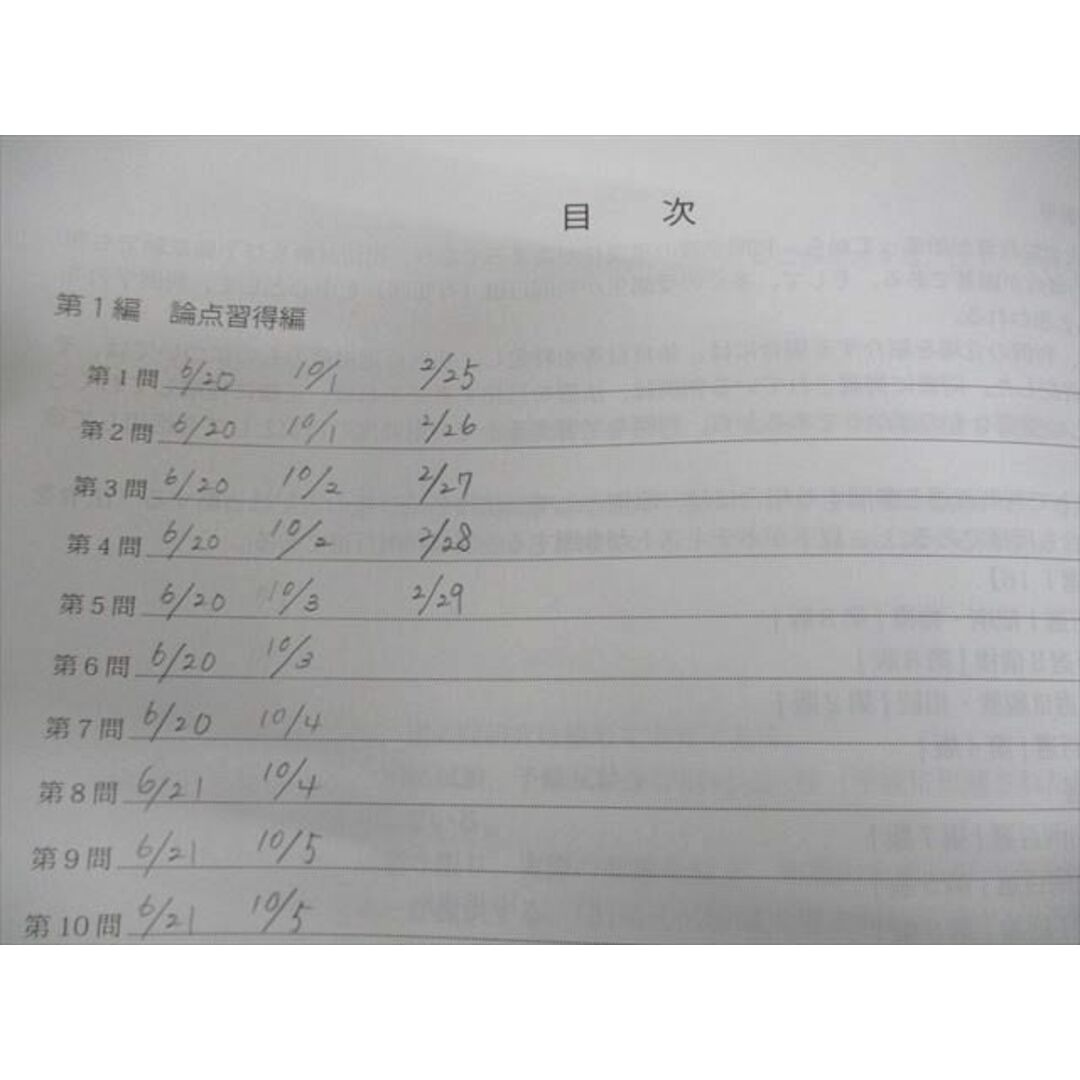 目 次
第1編 論点習得編
第1問 6/20 10/1 2/25
第2問 6/20 10/1 2/26
第3問 6/20 10/2 2/27
第4問 6/20 10/2 2/28
第5問 6/20 10/3 2/29
第6問 6/20 10/3
第7問 6/20 10/4
第8問 6/21 10/4
第9問 6/21 10/5
第10問 6/21 10/5